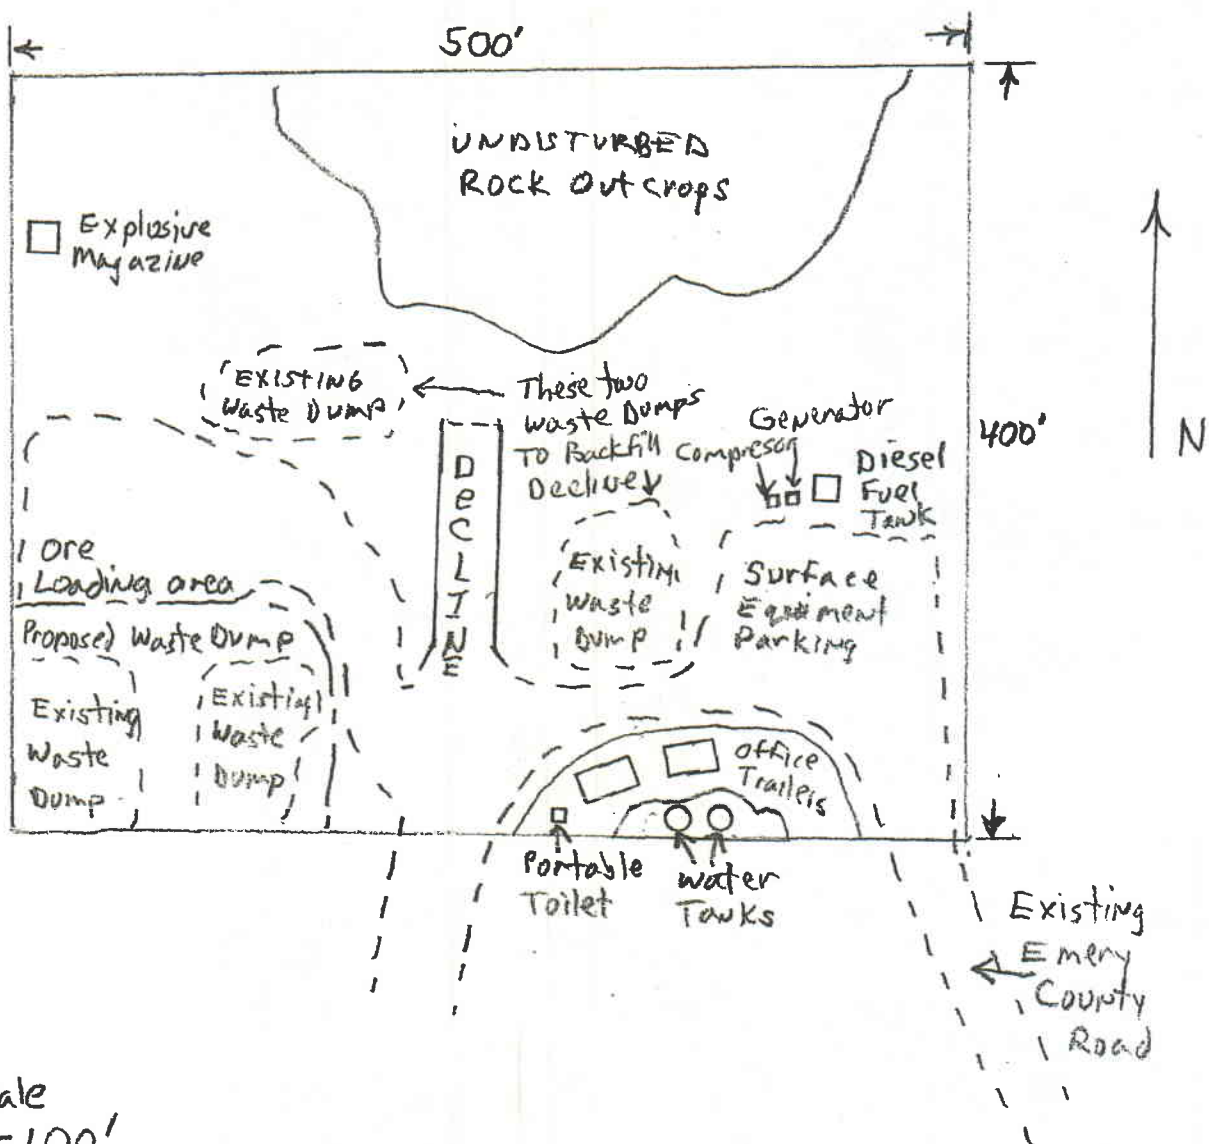 500'
UNDISTURBED
ROCK Outcrops
Explosive
Magazine
EXISTING
Waste Dump
These two
Waste Dumps
To Backfill
Decline
Generator
Compresor
Diesel
Fuel
Tank
400'
N
DeCLINE
ore
Loading area
Proposed Waste Dump
Existing
Waste
Dump
Existing
Waste
Dump
Existing
Waste
Dump
Surface
Equipment
Parking
Office
Trailers
Portable
Toilet
Water
Tanks
Existing
Emery
County
Road
ale
=100'